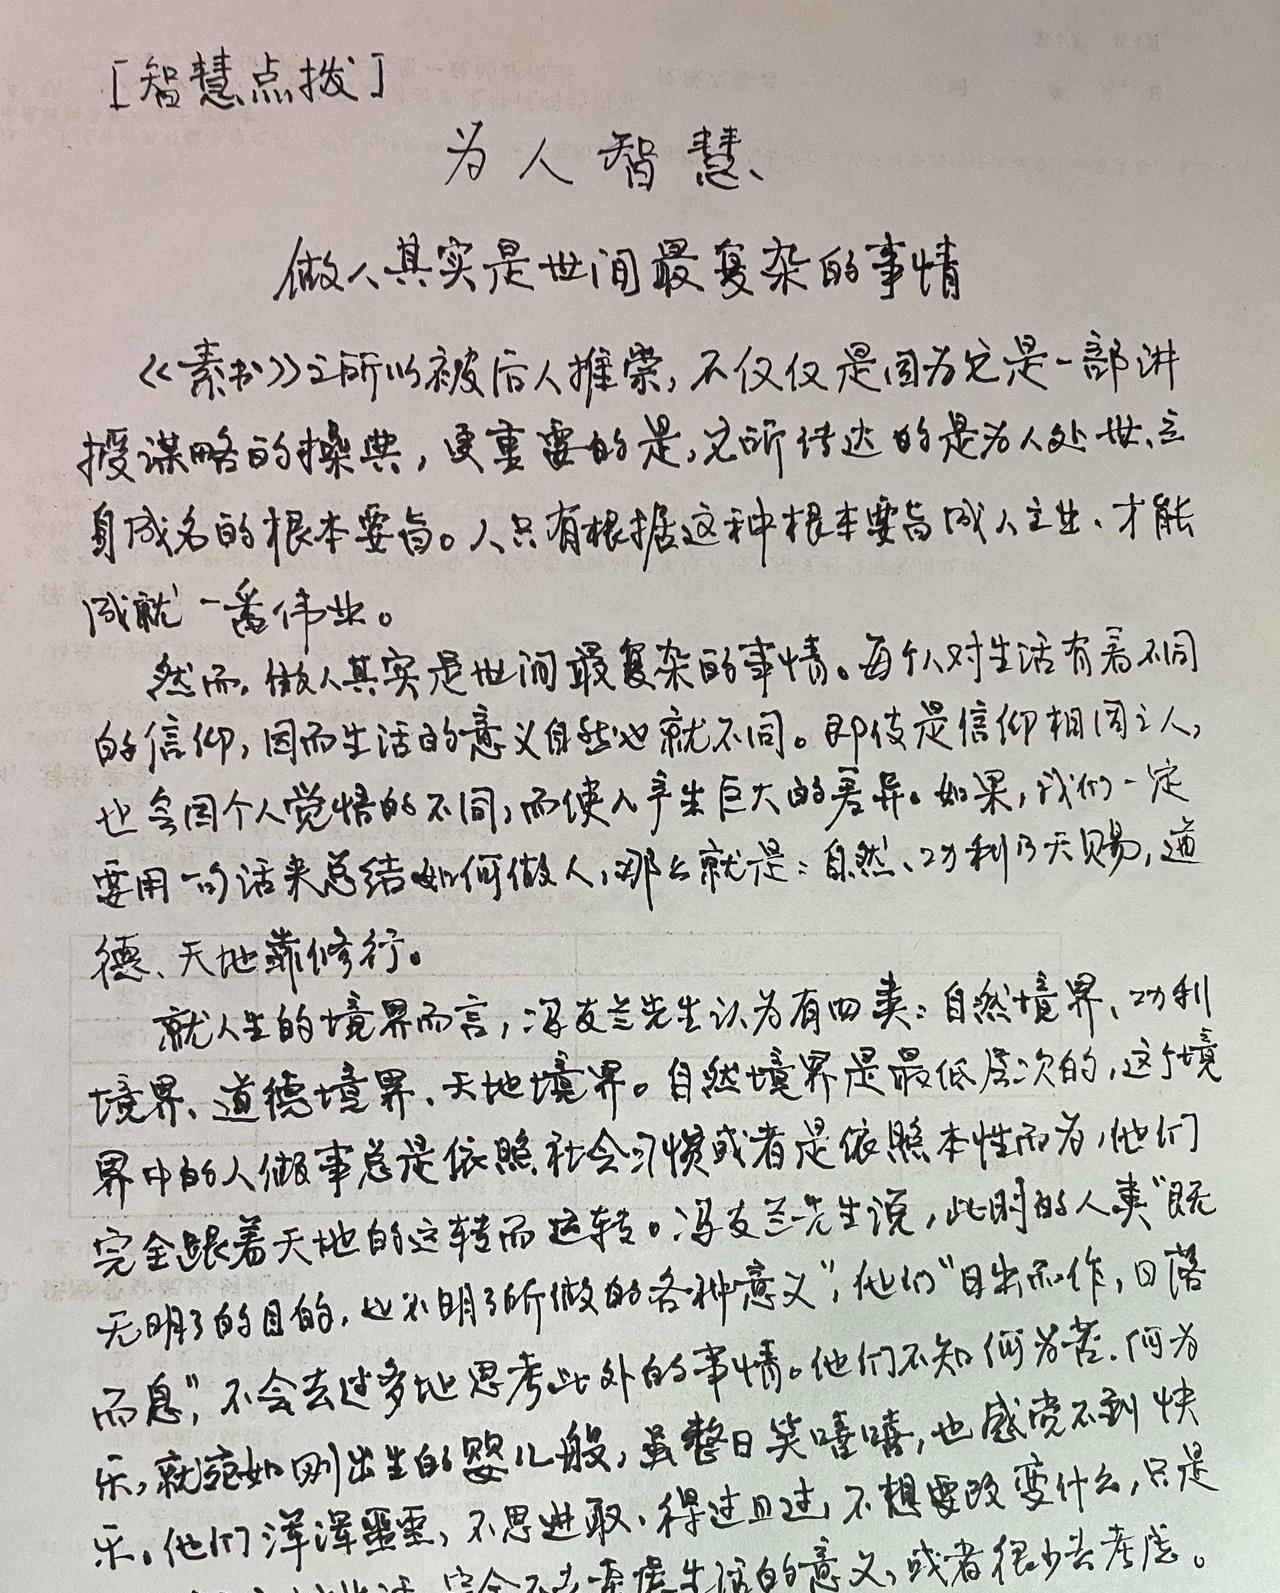 [智慧点拨]
为人智慧
做人其实是世间最复杂的事情
《素书》之所以被后人推崇,不仅仅是因为它是一部讲
授谋略的操典,更重要的是,它所传达的是为人处世、立
身成名的根本要旨。人只有根据这种根本要旨成人立业、才能
成就一番伟业。
然而,做人其实是世间最复杂的事情。每个人对生活有着不同
的信仰,因而生活的意义自然也就不同。即使是信仰相同之人,
也会因个人觉悟的不同,而使人产生巨大的差异。如果,我们一定
要用一句话来总结如何做人,那么就是:自然、功利乃天赐,道
德、天地靠修行。
就人生的境界而言,冯友兰先生认为有四类:自然境界、功利
境界、道德境界、天地境界。自然境界是最低层次的,这个境
界中的人做事总是依照社会习惯或者是依照本性而为,他们
完全跟着天地的运转而运转。冯友兰先生说,此时的人类“既
无明了的目的,也不明了所做的各种意义”,他们“日出而作,日落
而息”,不会去过多地思考此外的事情。他们不知何为苦、何为
乐,就宛如刚出生的婴儿般,虽整日笑嘻嘻,也感觉不到快
乐。他们浑浑噩噩,不思进取、得过且过,不想要改变什么,只是
完全不去考虑生活的意义,或者很少去考虑。